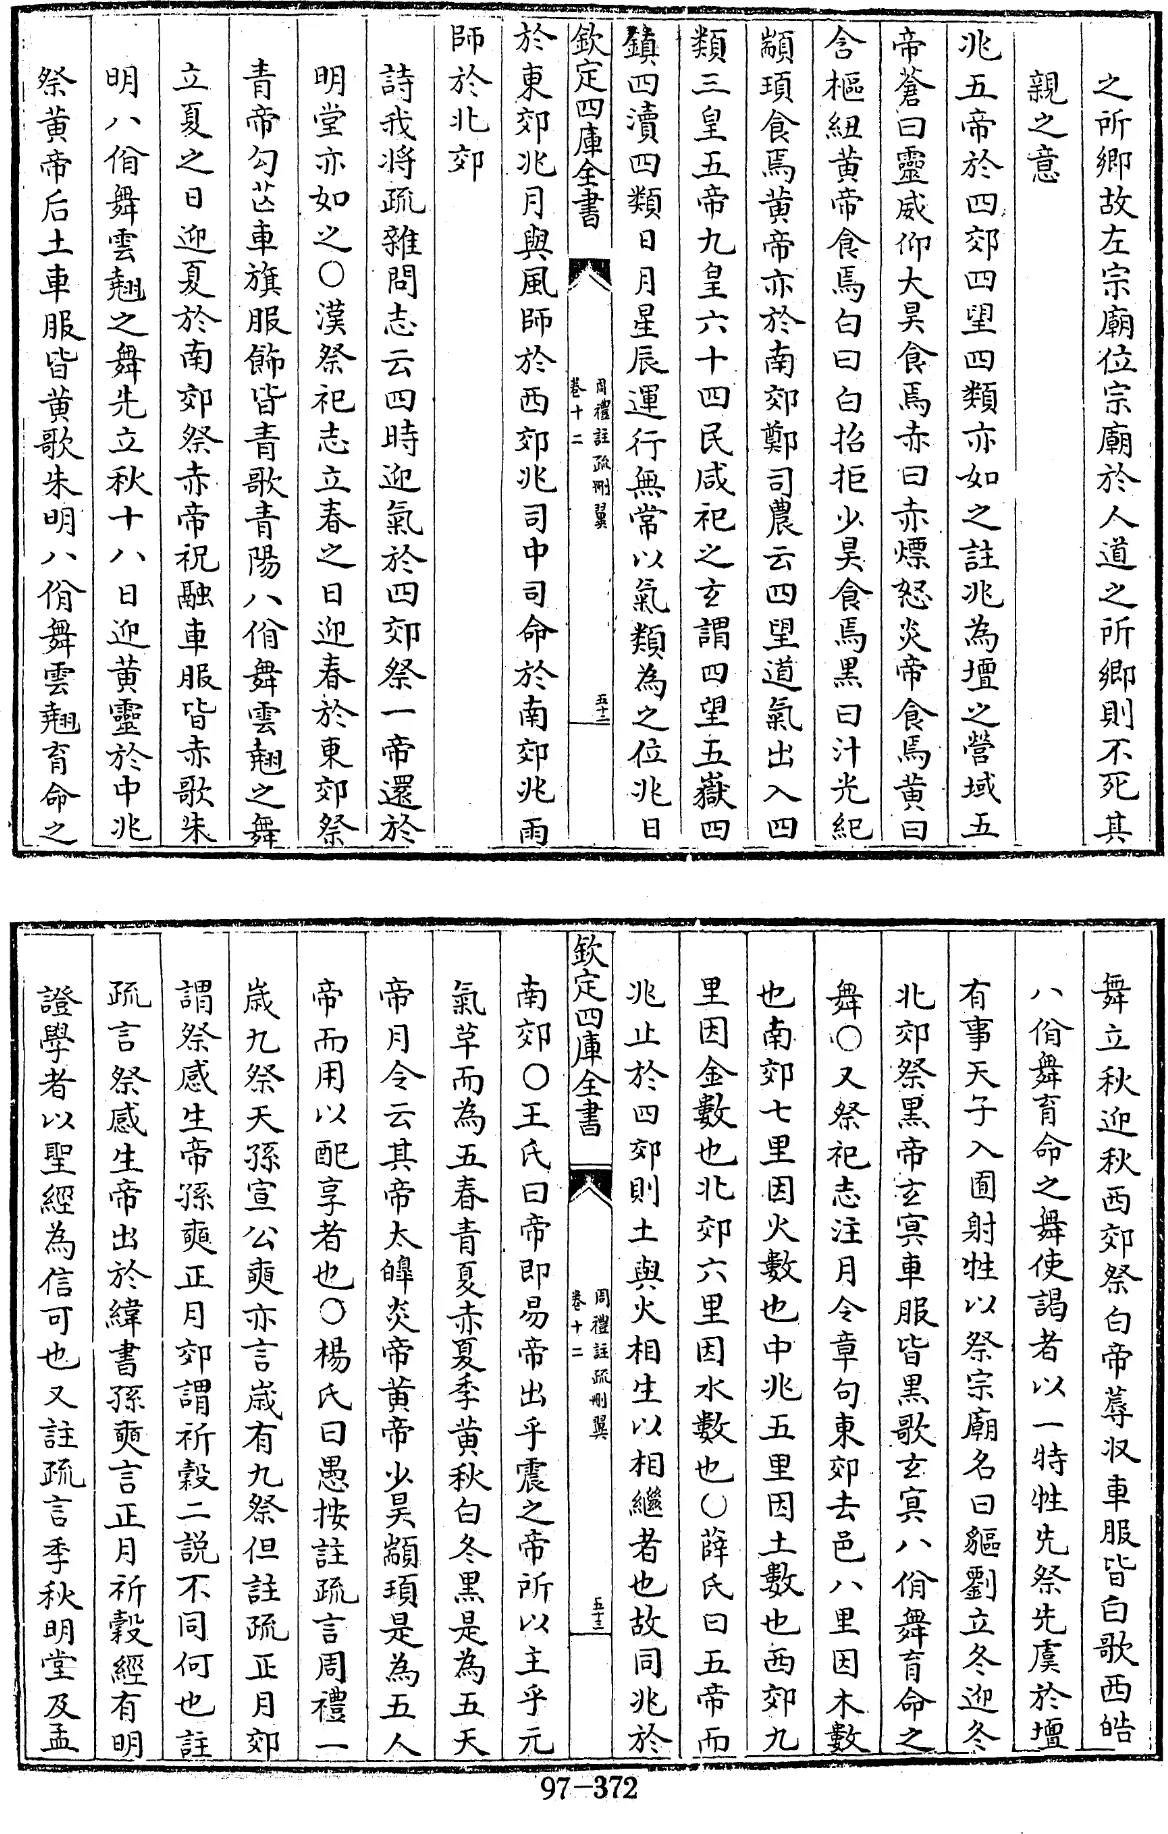 之所鄉故左宗廟位宗廟於人道之所鄉則不死其
親之意
兆五帝於四郊四望四類亦如之註兆為壇之營域五
帝蒼曰靈威仰大昊食焉赤曰赤熛怒炎帝食焉黄曰
含樞紐黄帝食焉白曰白招拒少昊食焉黑曰汁光紀
顓頊食焉黄帝亦於南郊鄭司農云四望道氣出入四
類三皇五帝九皇六十四民咸祀之玄謂四望五嶽四
鎮四瀆四類日月星辰運行無常以氣類為之位兆日
欽定四庫全書
周禮註疏刪翼
卷十二
五十二
於東郊兆月與風師於西郊兆司中司命於南郊兆雨
師於北郊
詩我將疏雜問志云四時迎氣於四郊祭一帝還於
明堂亦如之○漢祭祀志立春之日迎春於東郊祭
青帝勾芒車旗服飾皆青歌青陽八佾舞雲翹之舞
立夏之日迎夏於南郊祭赤帝祝融車服皆赤歌朱
明八佾舞雲翹之舞先立秋十八日迎黄靈於中兆
祭黄帝后土車服皆黄歌朱明八佾舞雲翹育命之
舞立秋迎秋西郊祭白帝蓐收車服皆白歌西皓
八佾舞育命之舞使謁者以一特牲先祭先虞於壇
有事天子入囿射牲以祭宗廟名曰貙劉立冬迎冬
北郊祭黑帝玄冥車服皆黑歌玄冥八佾舞育命之
舞○又祭祀志注月令章句東郊去邑八里因木數
也南郊七里因火數也中兆五里因土數也西郊九
里因金數也北郊六里因水數也○薛氏曰五帝而
兆止於四郊則土與火相生以相繼者也故同兆於
欽定四庫全書
周禮註疏刪翼
卷十二
五十三
南郊○王氏曰帝即易帝出乎震之帝所以主乎元
氣草而為五春青夏赤夏季黄秋白冬黑是為五天
帝月令云其帝太皥炎帝黄帝少昊顓頊是為五人
帝而用以配享者也○楊氏曰愚按註疏言周禮一
歲九祭天孫宣公奭亦言歲有九祭但註疏正月郊
謂祭感生帝孫奭正月郊謂祈穀二説不同何也註
疏言祭感生帝出於緯書孫奭言正月祈穀經有明
證學者以聖經為信可也又註疏言季秋明堂及孟
97-372